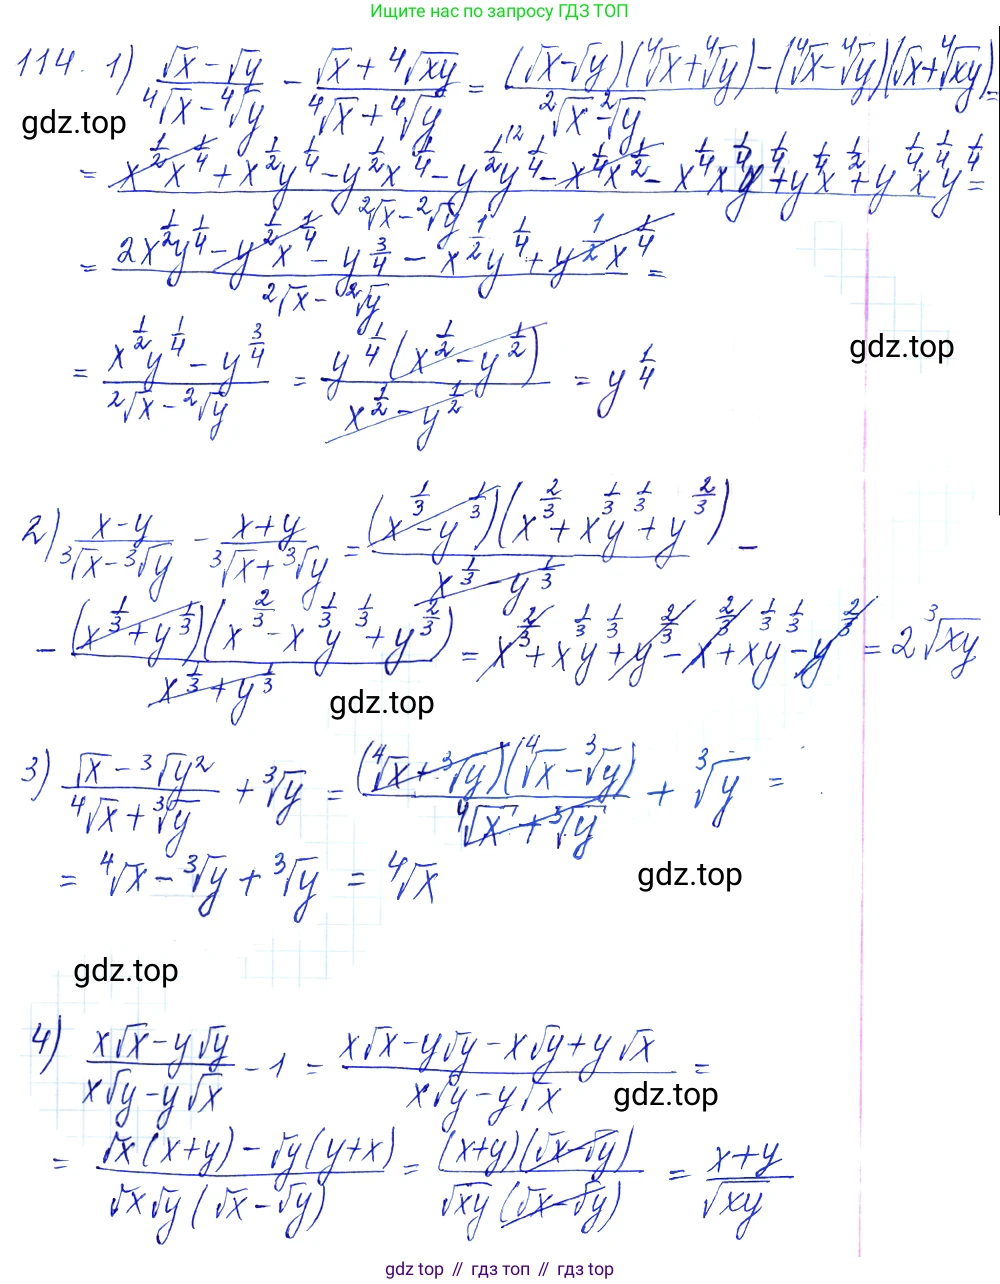 Ищите нас по запросу ГДЗ ТОП
114. 1) (√x − √y)/(⁴√x − ⁴√y) − (√x + ⁴√xy)/(⁴√x + ⁴√y) = ((√x − √y)(⁴√x + ⁴√y) − (⁴√x − ⁴√y)(√x + ⁴√xy))/(²√x − ²√y) =
gdz.top
= (x^(1/2)x^(1/4) + x^(1/2)y^(1/4) − y^(1/2)x^(1/4) − y^(1/2)y^(1/4) − x^(1/4)x^(1/2) − x^(1/4)x^(1/4)y^(1/4) + y^(1/4)x^(1/2) + y^(1/4)x^(1/4)y^(1/4))/(²√x − ²√y) =
= (2x^(1/2)y^(1/4) − y^(1/2)x^(1/4) − y^(3/4) − x^(1/2)y^(1/4) + y^(1/2)x^(1/4))/(²√x − ²√y) =
= (x^(1/2)y^(1/4) − y^(3/4))/(²√x − ²√y) = y^(1/4)(x^(1/2) − y^(1/2))/(x^(1/2) − y^(1/2)) = y^(1/4)
gdz.top
2) (x − y)/(³√x − ³√y) − (x + y)/(³√x + ³√y) = (x^(1/3) − y^(1/3))(x^(2/3) + x^(1/3)y^(1/3) + y^(2/3))/(x^(1/3) − y^(1/3)) −
− (x^(1/3) + y^(1/3))(x^(2/3) − x^(1/3)y^(1/3) + y^(2/3))/(x^(1/3) + y^(1/3)) = x^(2/3) + x^(1/3)y^(1/3) + y^(2/3) − x^(2/3) + x^(1/3)y^(1/3) − y^(2/3) = 2³√xy
gdz.top
3) (√x − ³√y²)/(⁴√x + ³√y) + ³√y = (⁴√x + ³√y)(⁴√x − ³√y)/(⁴√x + ³√y) + ³√y =
= ⁴√x − ³√y + ³√y = ⁴√x
gdz.top
gdz.top
4) (x√x − y√y)/(x√y − y√x) − 1 = (x√x − y√y − x√y + y√x)/(x√y − y√x) =
gdz.top
= (√x(x + y) − √y(y + x))/(√x√y(√x − √y)) = (x + y)(√x − √y)/(√xy(√x − √y)) = (x + y)/√xy
gdz.top // гдз.top // гдз top